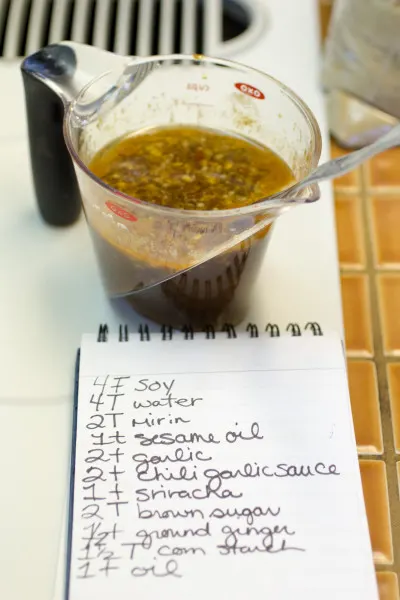 OXO
4T Soy
4T water
2T Mirin
1t sesame oil
2t garlic
2t chili garlic sauce
1t sriracha
2T brown sugar
1/2t ground ginger
1 1/2 T corn starch
1T oil